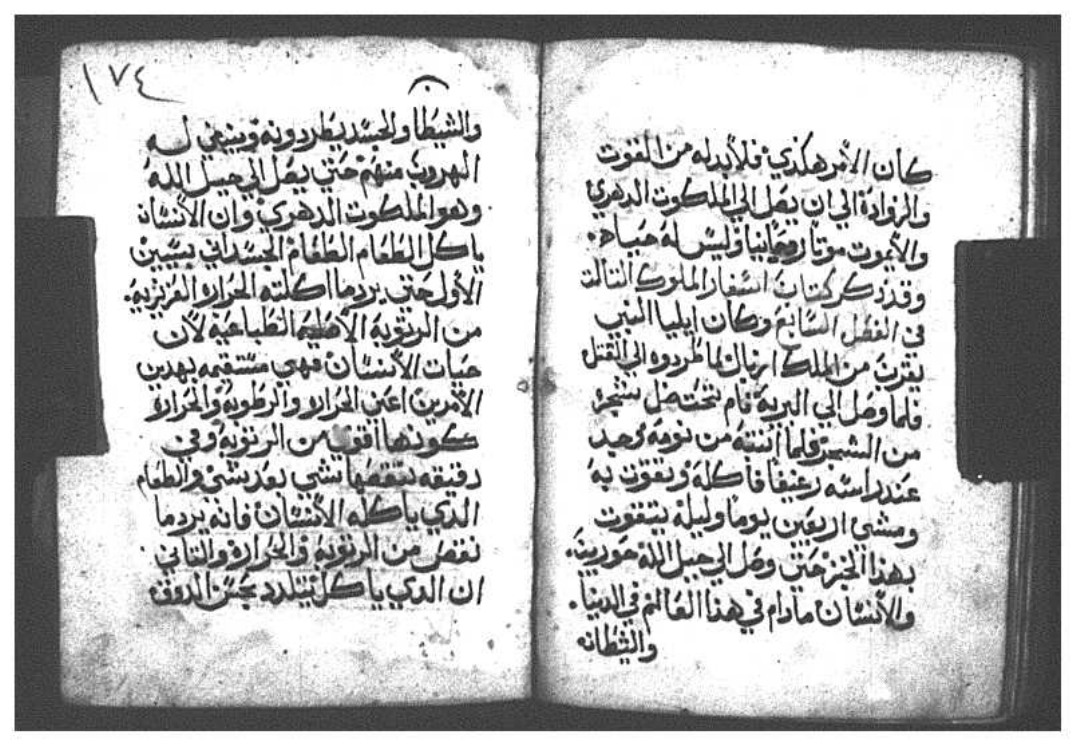 كان الأمر هكذي فلا بد له من القوت
والزوادة الي ان يصل الي الملكوت الدهري
والا يموت موتا روحانيا وليس له حياه.
وقد ذكر كتاب اسفار الملوك الثالث
في الفصل السابع وكان ايليا النبي
يقرب من الملكه ازبال لما طردوه الي القتل
فلما وصل الي البريه نام تحت ظل شجره
من الشجر فلما انتبه من نومه وجد
عند راسه رغيفا فاكله وتقوت به
ومشي اربعين يوما وليله يتقوت
بهذا الخبز حتي وصل الي جبل الله حوريب.
والأنسان مادام في هذا العالم في الدنيا.
والشطانه
١٧٤
والشيطا والجسد يطردونه وينبغي له
الهروب منهم حتي يصل الي جبل الله
وهو الملكوت الدهري وان الأنسان
ياكل الطعام الطعام الجسداني بسببين
الأول حتي يرد ما اكلته الحراره الغريزيه.
من الرتوبه الأصليه الطباعيه لأن
حيات الأنسان فهي مستقيمه بهدين
الأمرين اعني الحراره والرطوبه والحراره
كونها اقوي من الرتوبه وفي
دقيقه تنقصها شي بعد شي والطعام
الدي ياكله الأنسان فانه يرد ما
نقص من الرتوبه والحراره والتاني
ان الدي ياكل يتلدد بحسن الدوق